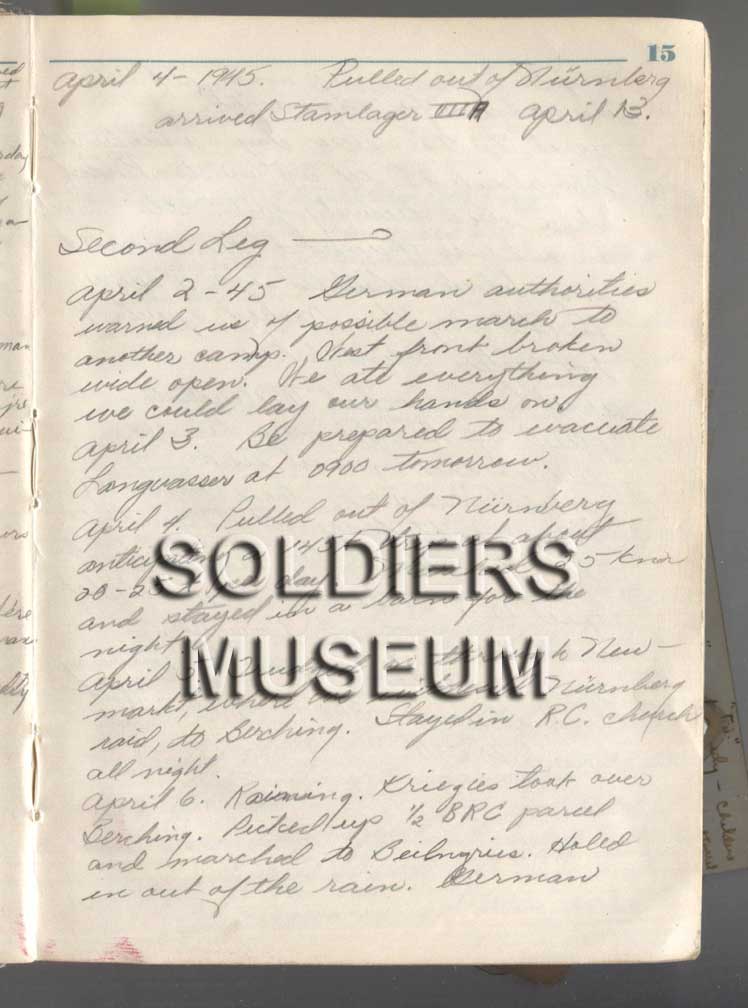 15
April 4 - 1945. Pulled out of Nürnberg
arrived Stamlager VIIA April 13.
Second Leg
April 2 - 45 German authorities
warned us of possible march to
another camp. West front broken
wide open. We ate everything
we could lay our hands on.
April 3. Be prepared to evacuate
Langwasser at 0900 tomorrow.
April 4. Pulled out of Nürnberg
about
20-25 day. 5 km
and stayed in a barn for the
night
April 5 through Neu-
markt, where Nürnberg
raid, to Berching. Stayed in R.C. church
all night.
April 6. Raining. Kriegies took over
Berching. Picked up 1/2 BRC parcel
and marched to Beilngries. Holed
in out of the rain. German
SOLDIERS
MUSEUM